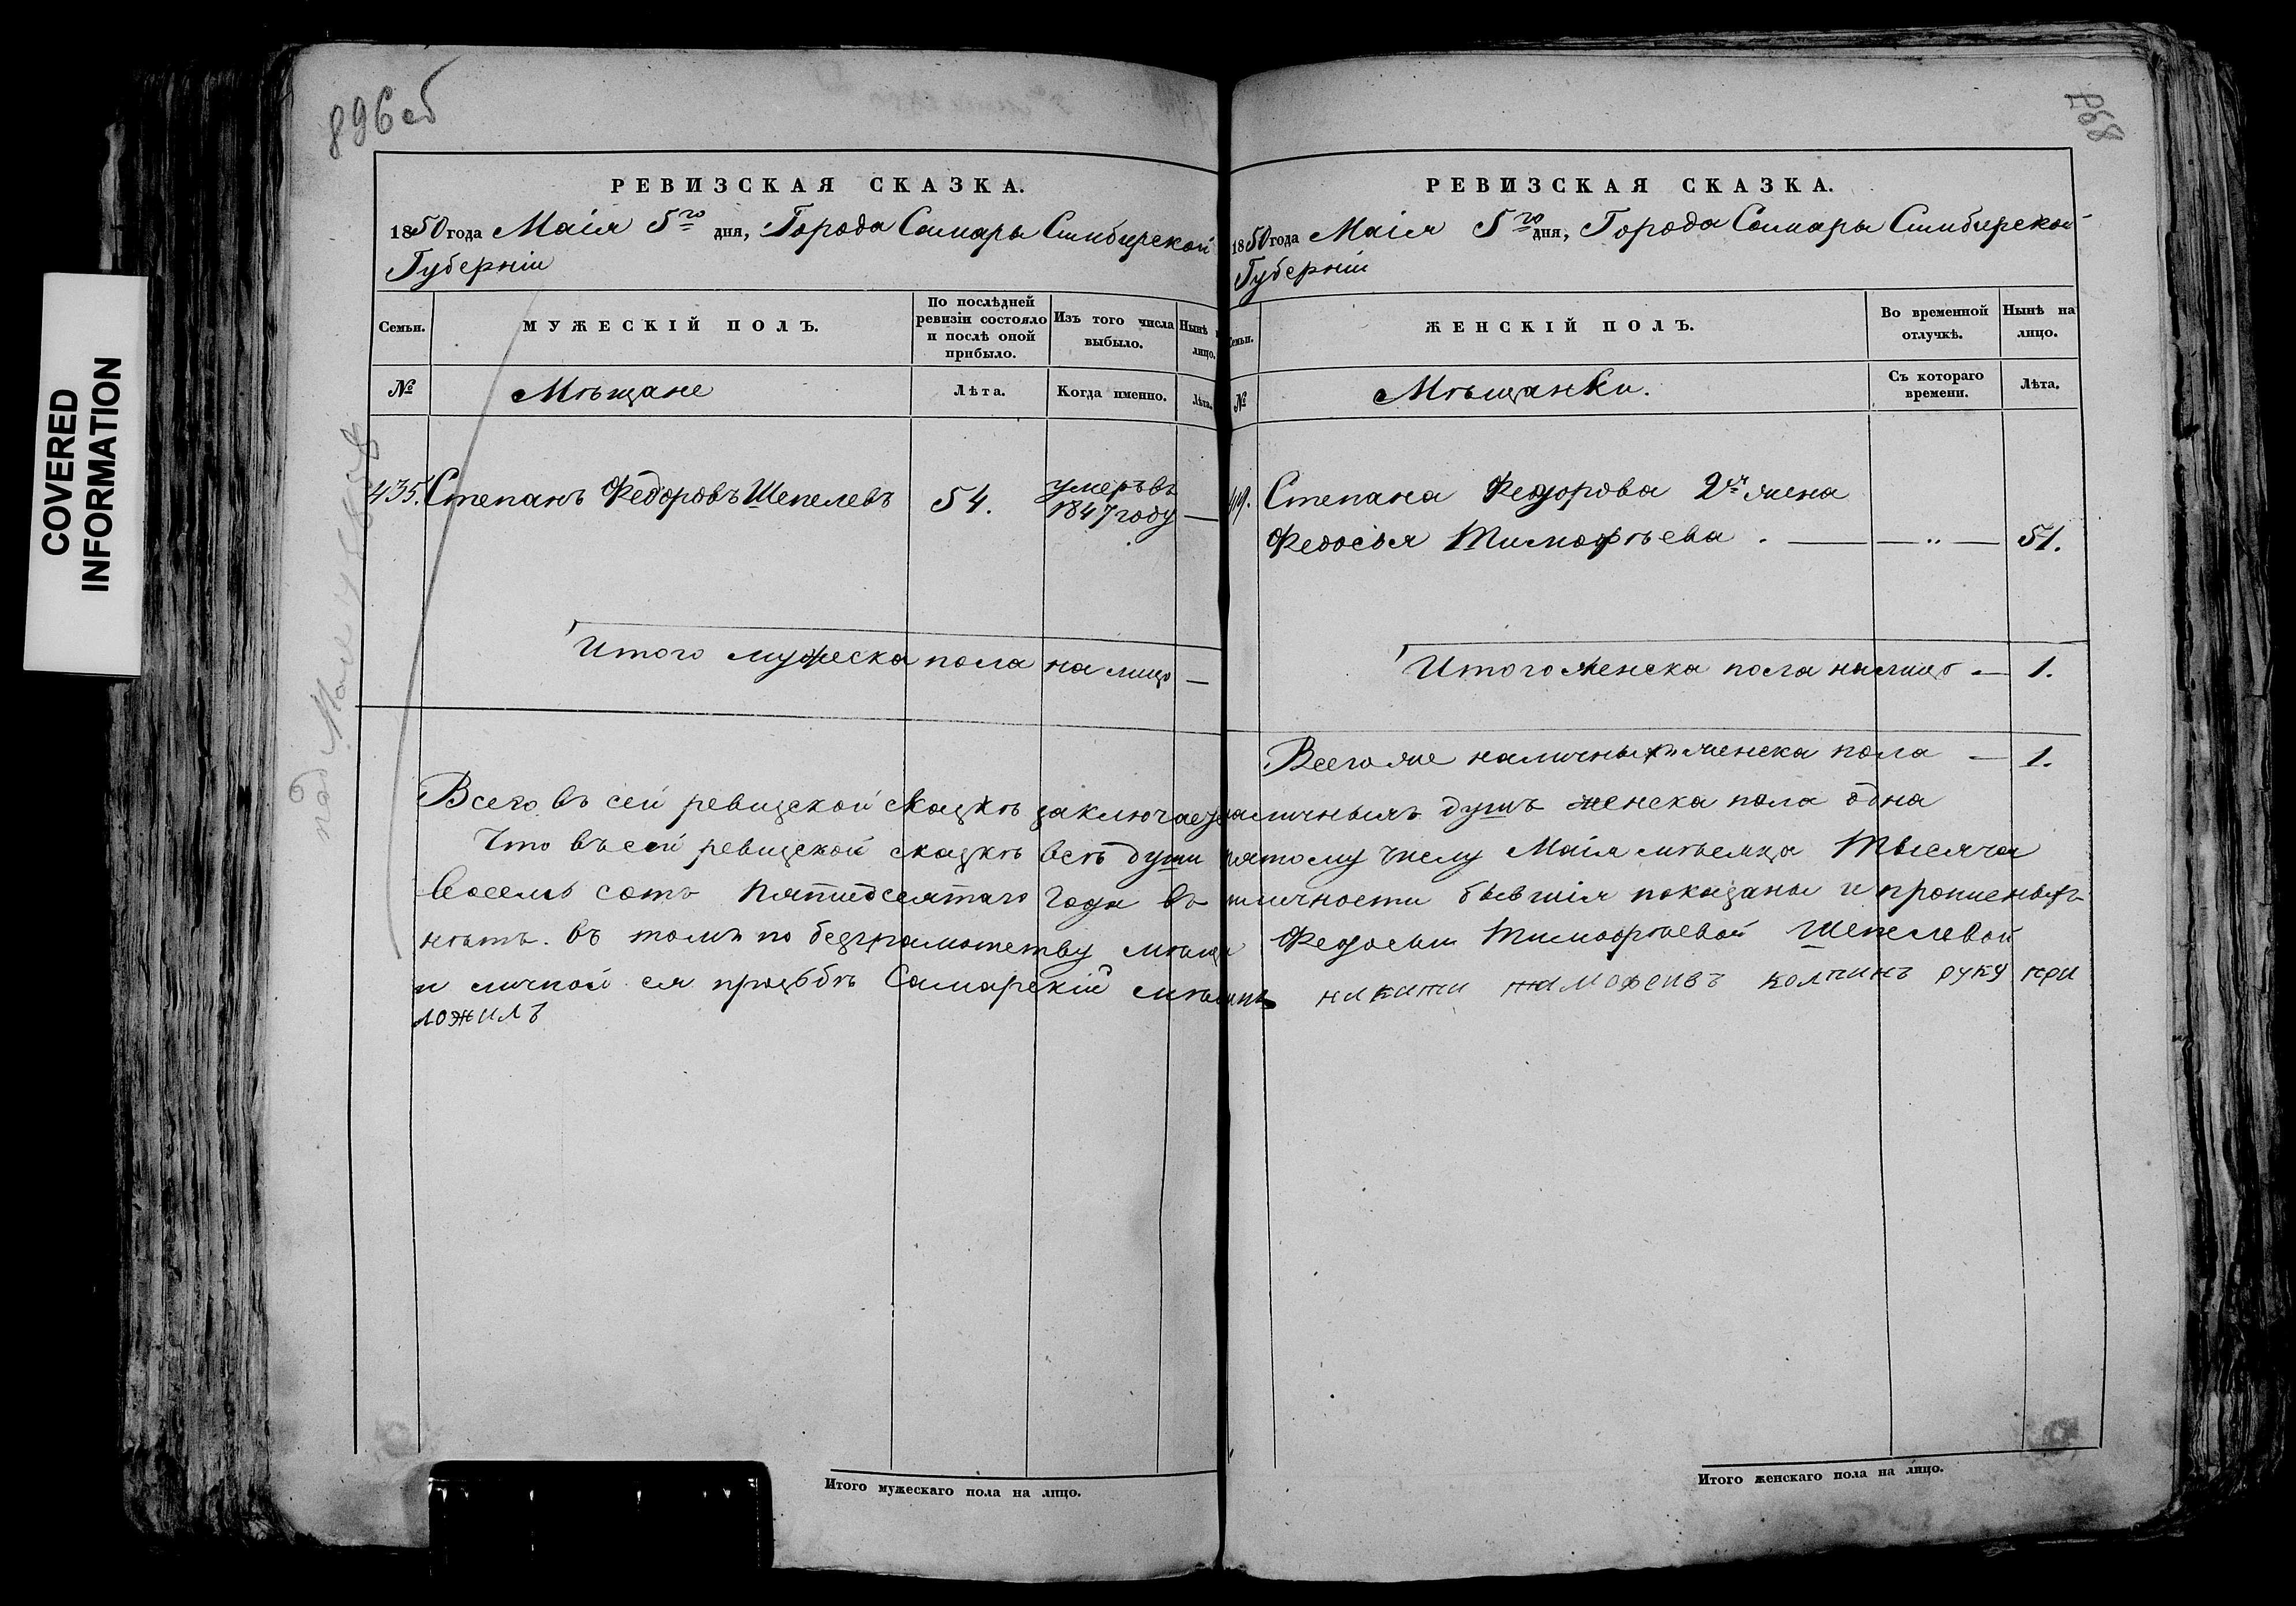 896 об
РЕВИЗСКАЯ СКАЗКА.
1850 года Маія 5го дня, Города Самары Симбирской
Губерніи
Семьи.
МУЖЕСКІЙ ПОЛЪ.
По послѣдней
ревизіи состояло
и послѣ оной
прибыло.
Изъ того числа
выбыло.
Нынѣ
лицо.
№
Мѣщане
Лѣта.
Когда именно.
Лѣта.
435. Степанъ Федоровъ Шепелевъ 54. умеръ въ
1847 году —
Итого мужеска пола на лицо —
Итого мужескаго пола на лицо.
897
РЕВИЗСКАЯ СКАЗКА.
1850 года Маія 5го дня, Города Самары Симбирской
Губерніи
Семьи.
ЖЕНСКІЙ ПОЛЪ.
Во временной
отлучкѣ.
Нынѣ на
лицо.
№
Мѣщанки.
Съ котораго
времени.
Лѣта.
Степана Федорова 2я жена
Федосья Тимофѣева . — — „ — 51.
Итого женска пола на лицо — 1.
Всего же наличныхъ женска пола — 1.
Всего въ сей ревизской сказкѣ заключае наличныхъ душъ женска пола одна
Что въ сей ревизской сказкѣ всѣ души пятому числу Маія мѣсяца Тысяча
восемь сотъ пятидесятаго года въ наличности бывшія показаны и прописныхъ
нѣтъ. въ томъ по безграмотству мѣщ Федосьи Тимофѣевой Шепелевой
и личной ея прозьбѣ Самарскій мѣщанъ никити тимофеивъ руку при
ложилъ
Итого женскаго пола на лицо.
COVERED
INFORMATION